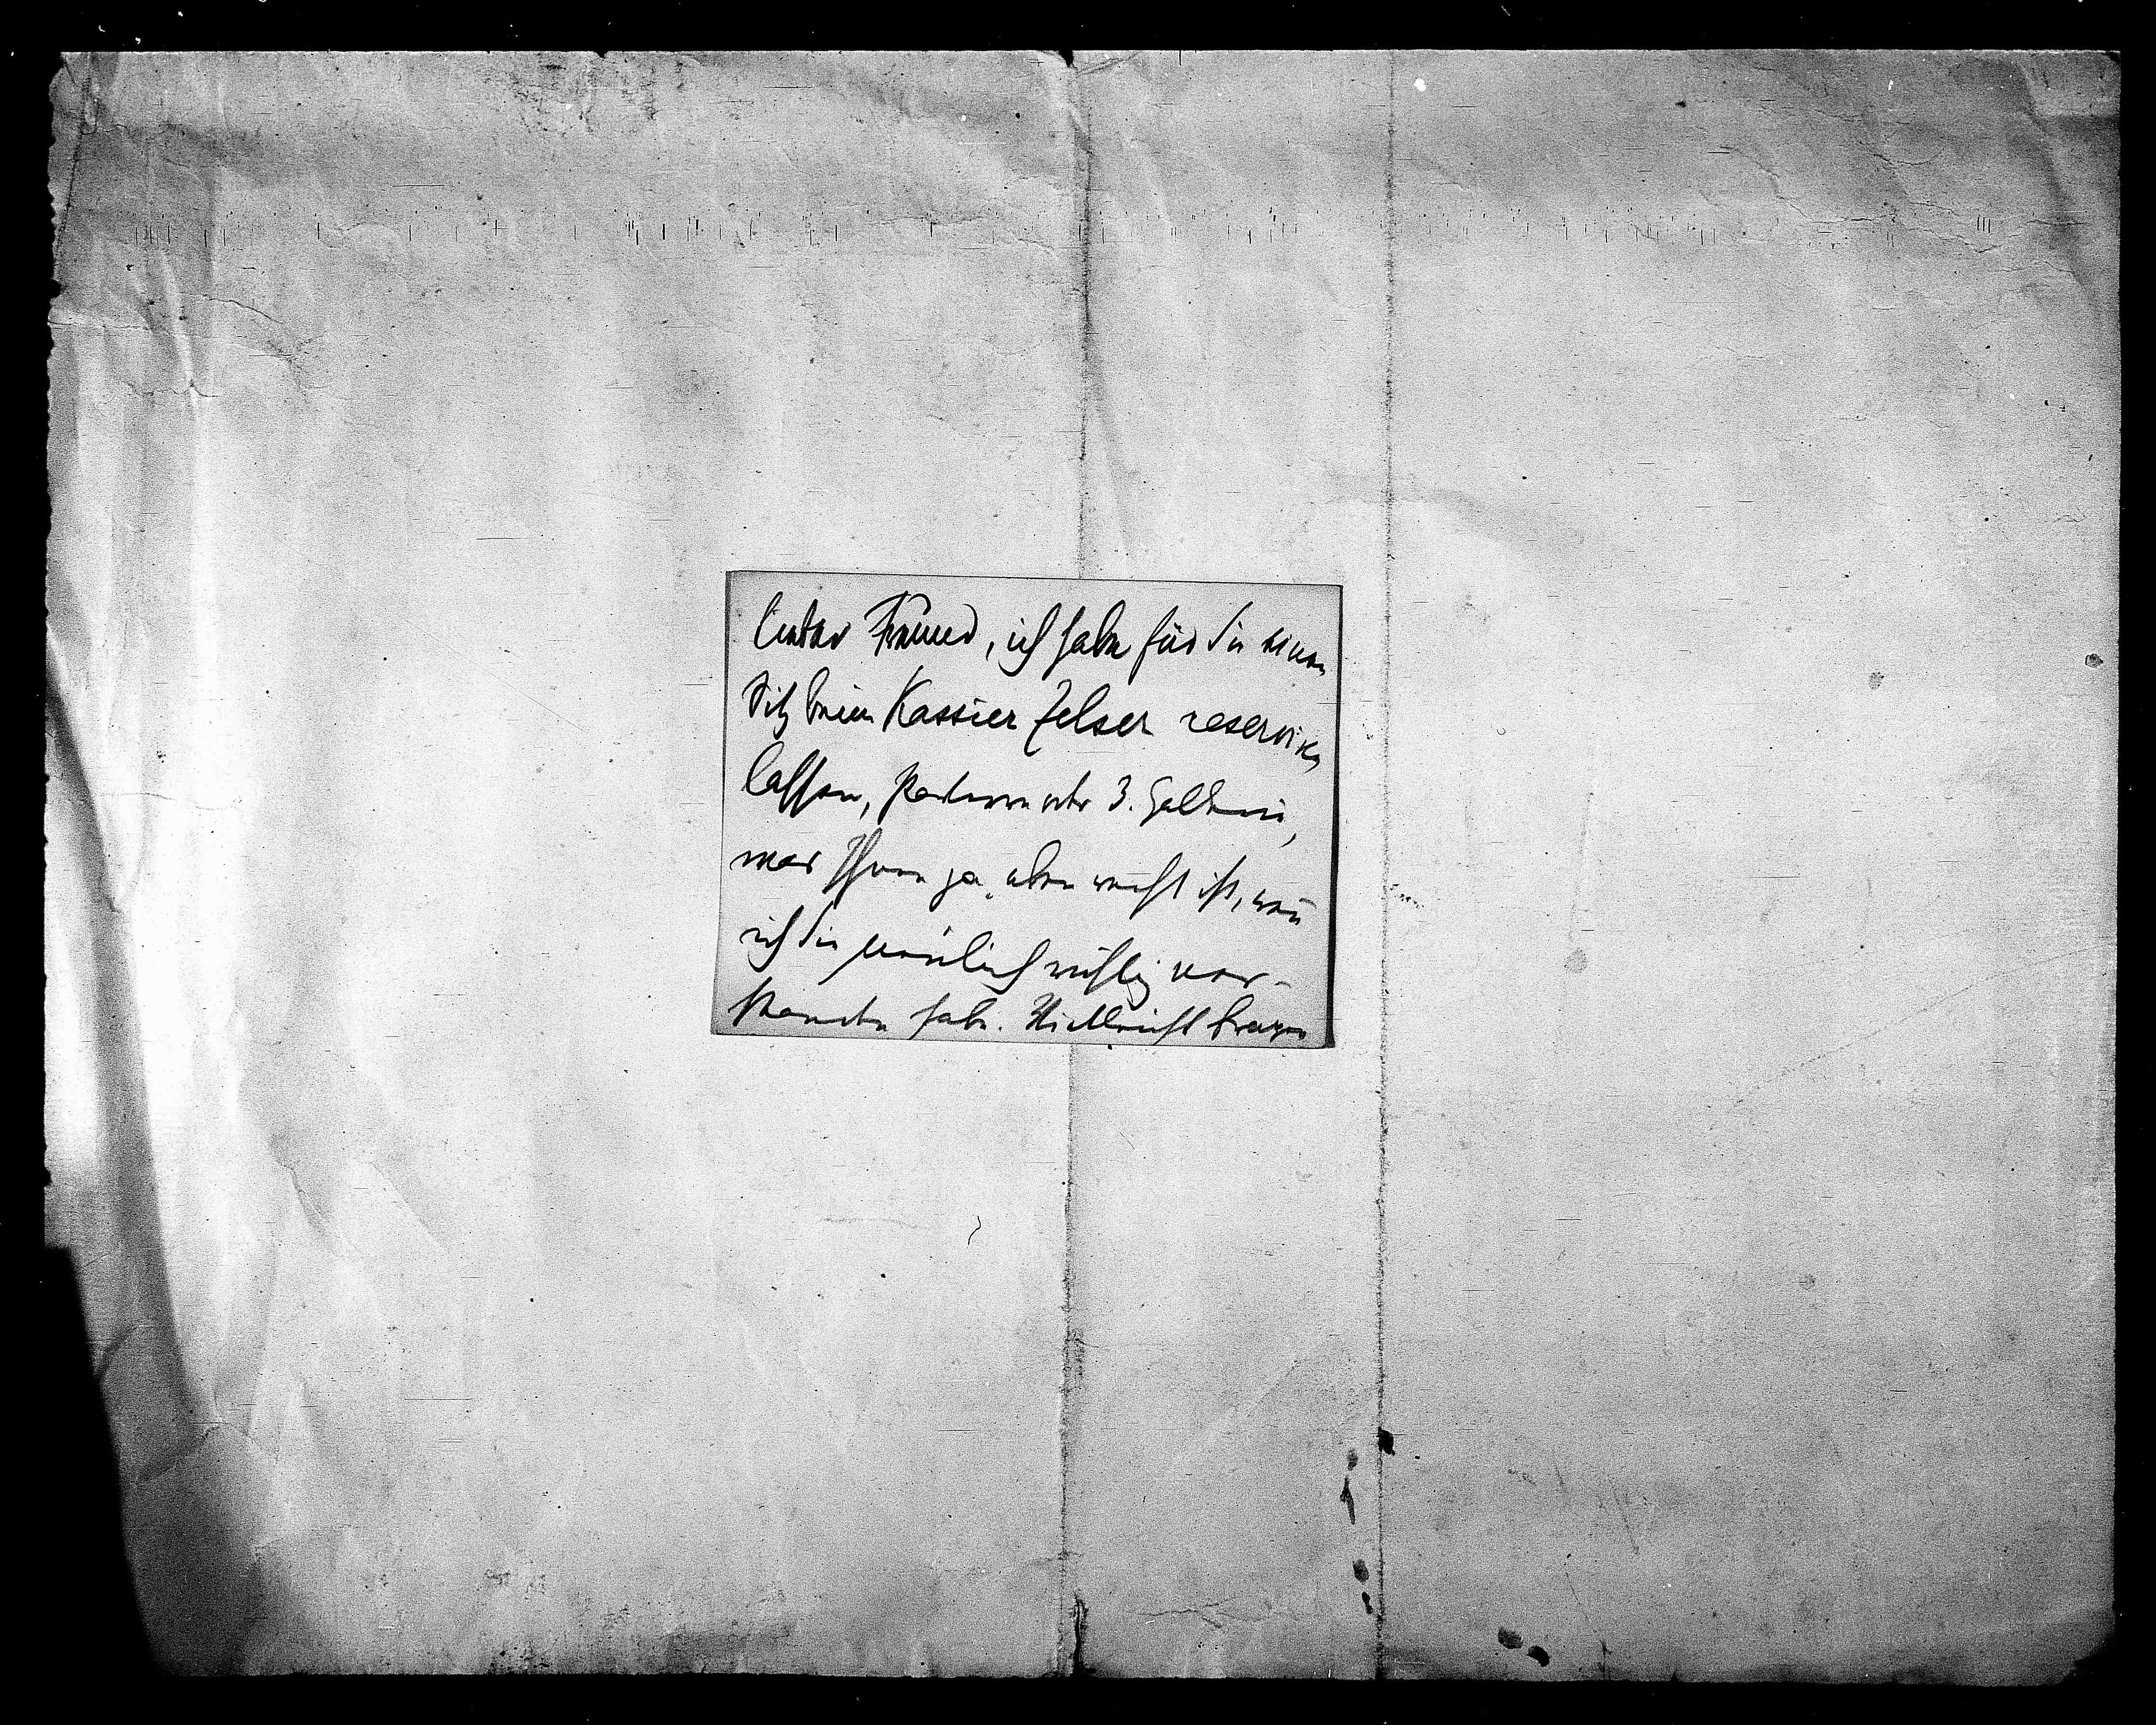 lieber Freund, ich habe für Sie einen
Sitz beim Kassier Zelser reserviren
lassen, Parterre oder 3. Gallerie,
was Ihnen ja eben recht ist, wenn
ich Sie neulich richtig ver-
standen habe. Vielleicht